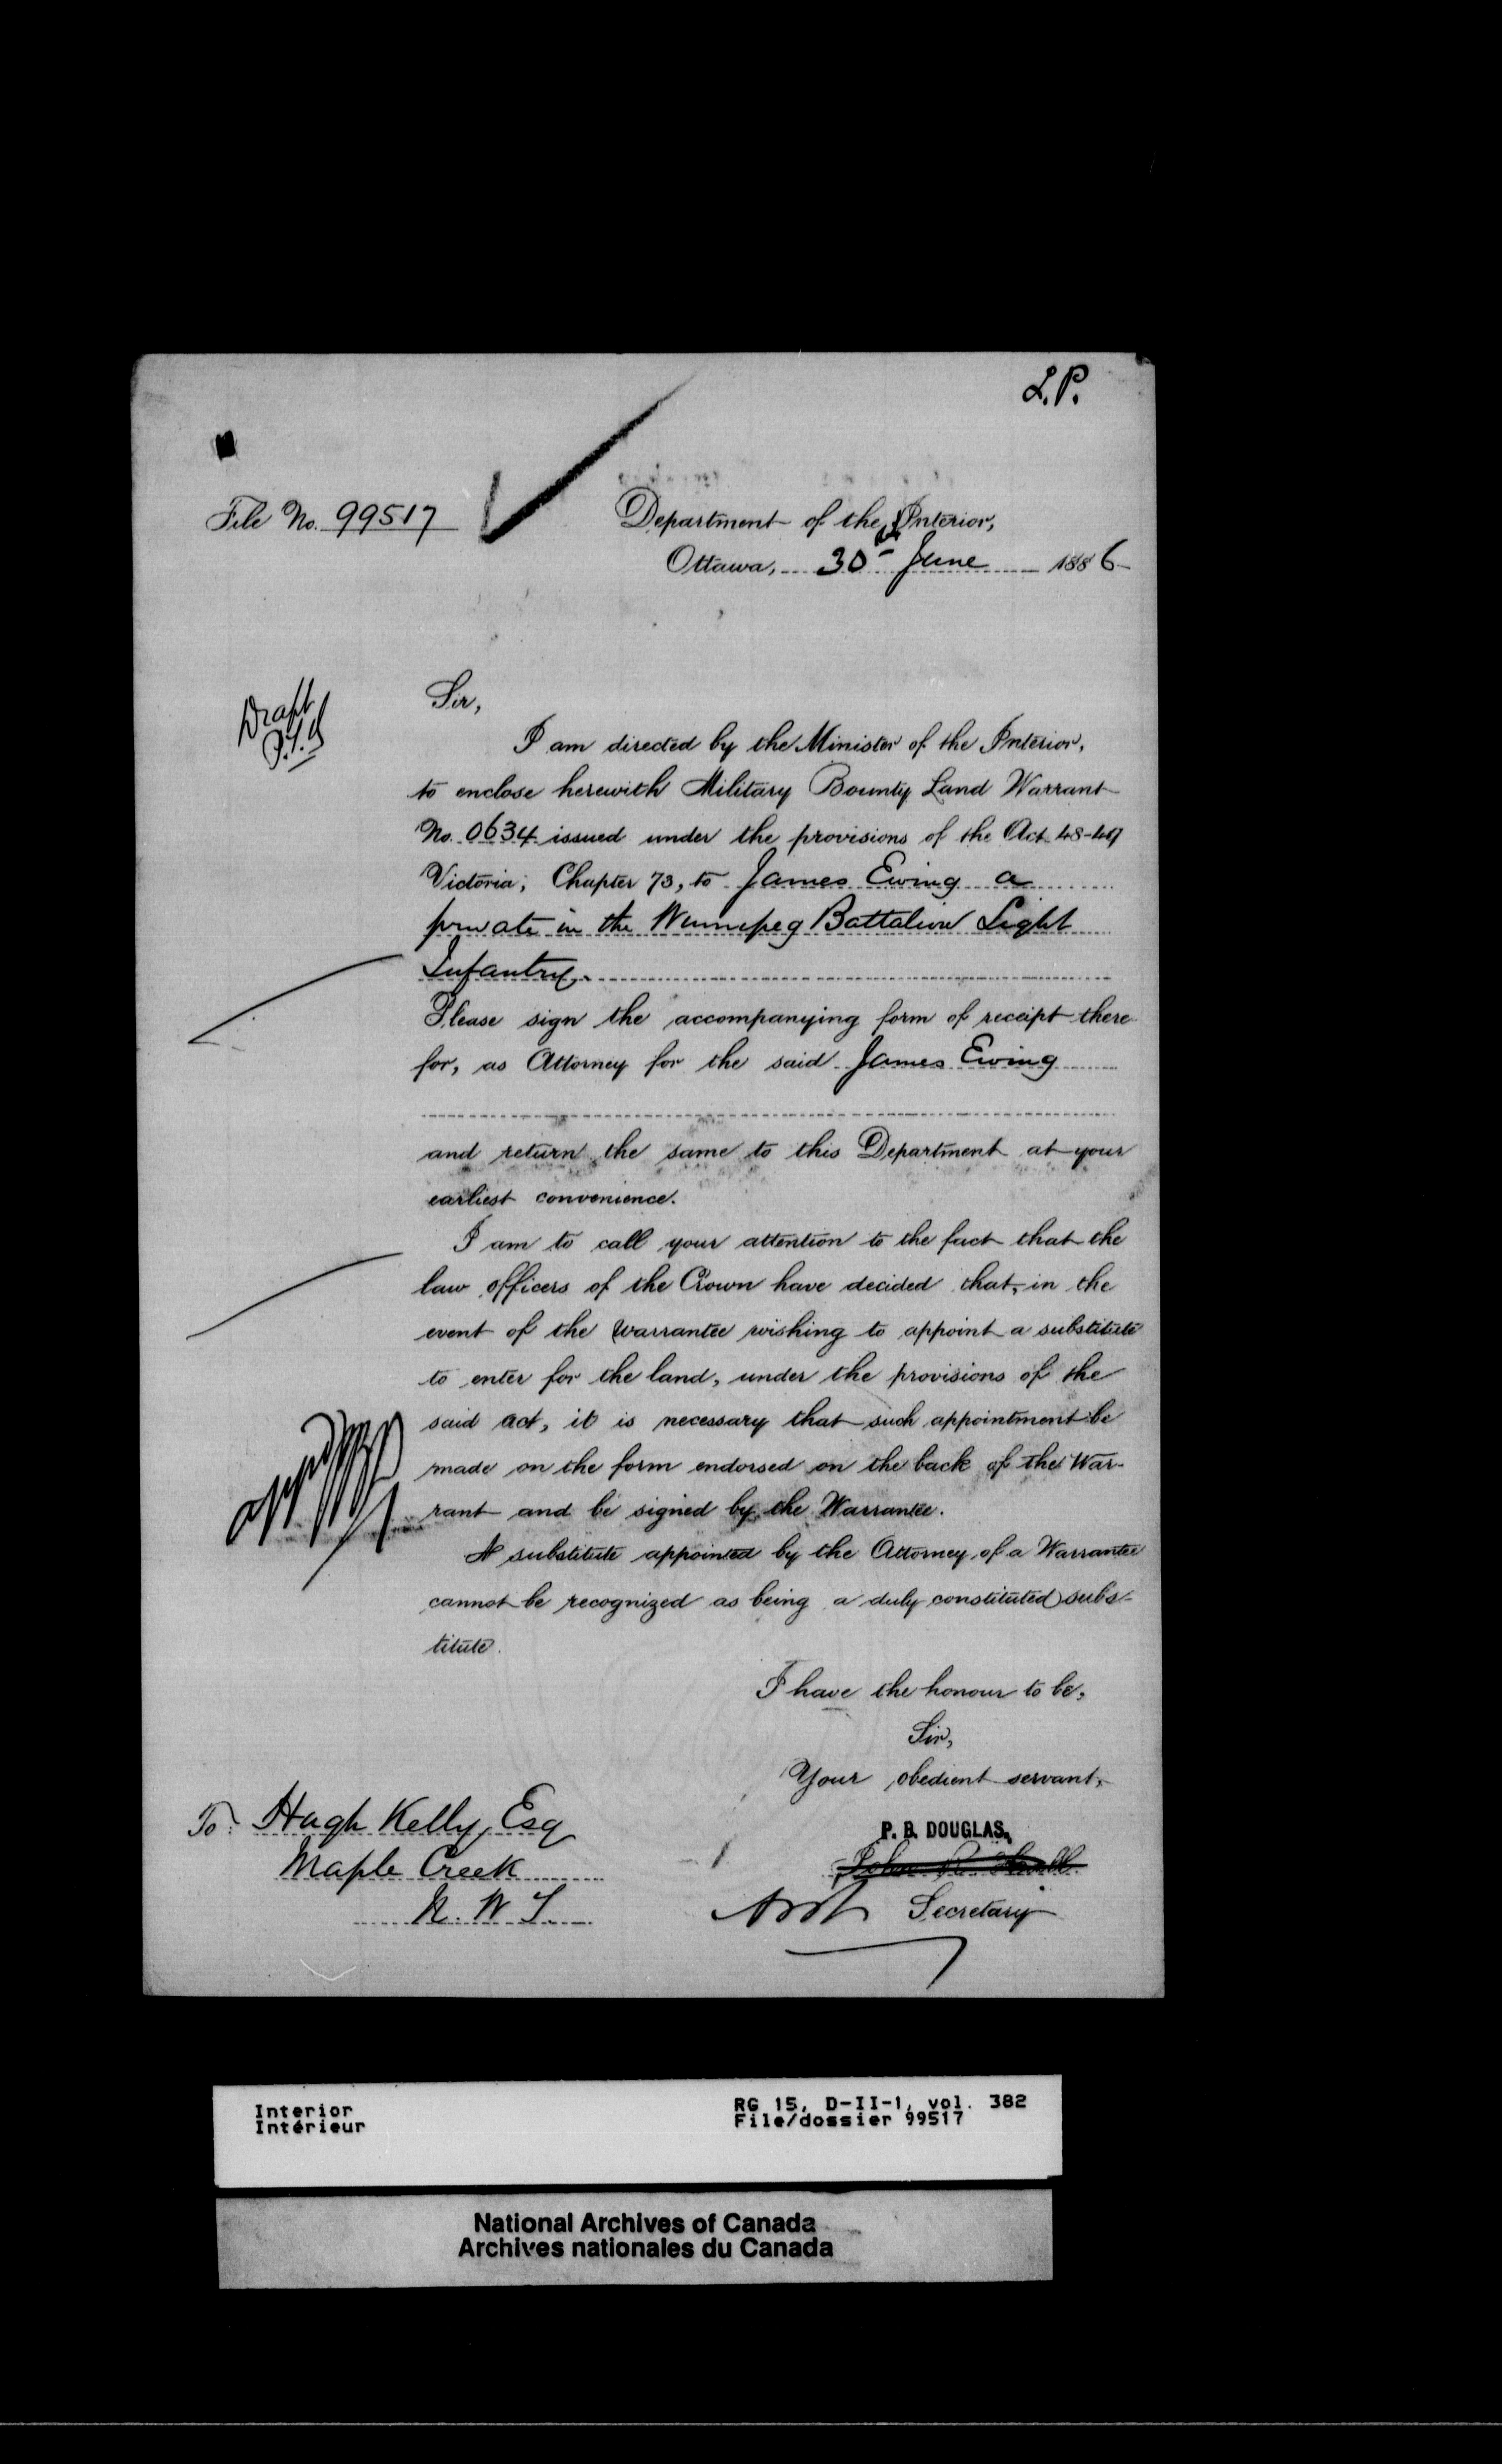 L.P.
File No. 99517
Department of the Interior,
Ottawa, 30th June 1886
Draft
Sir,
I am directed by the Minister of the Interior,
to enclose herewith Military Bounty Land Warrant
No. 0634 issued under the provisions of the Act 48-49
Victoria, Chapter 73, to James Ewing a
private in the Winnipeg Battalion Light
Infantry.
Please sign the accompanying form of receipt there
for, as Attorney for the said James Ewing
and return the same to this Department at your
earliest convenience.
I am to call your attention to the fact that the
law officers of the Crown have decided that, in the
event of the Warrantee wishing to appoint a substitute
to enter for the land, under the provisions of the
said act, it is necessary that such appointment be
made on the form endorsed on the back of the War-
rant and be signed by the Warrantee.
A substitute appointed by the Attorney of a Warrantee
cannot be recognized as being a duly constituted subs-
titute.
I have the honour to be,
Sir,
Your obedient servant,
P. B. DOUGLAS,
Secretary
To: Hugh Kelly, Esq
Maple Creek
N. W. T.
Interior
Intérieur
RG 15, D-II-1, vol. 382
File/dossier 99517
National Archives of Canada
Archives nationales du Canada